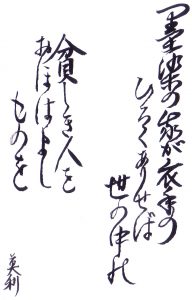 墨染の我が衣手の
ひろくありせば
世の中の
貧しき人を
おほはまし
ものを
英利